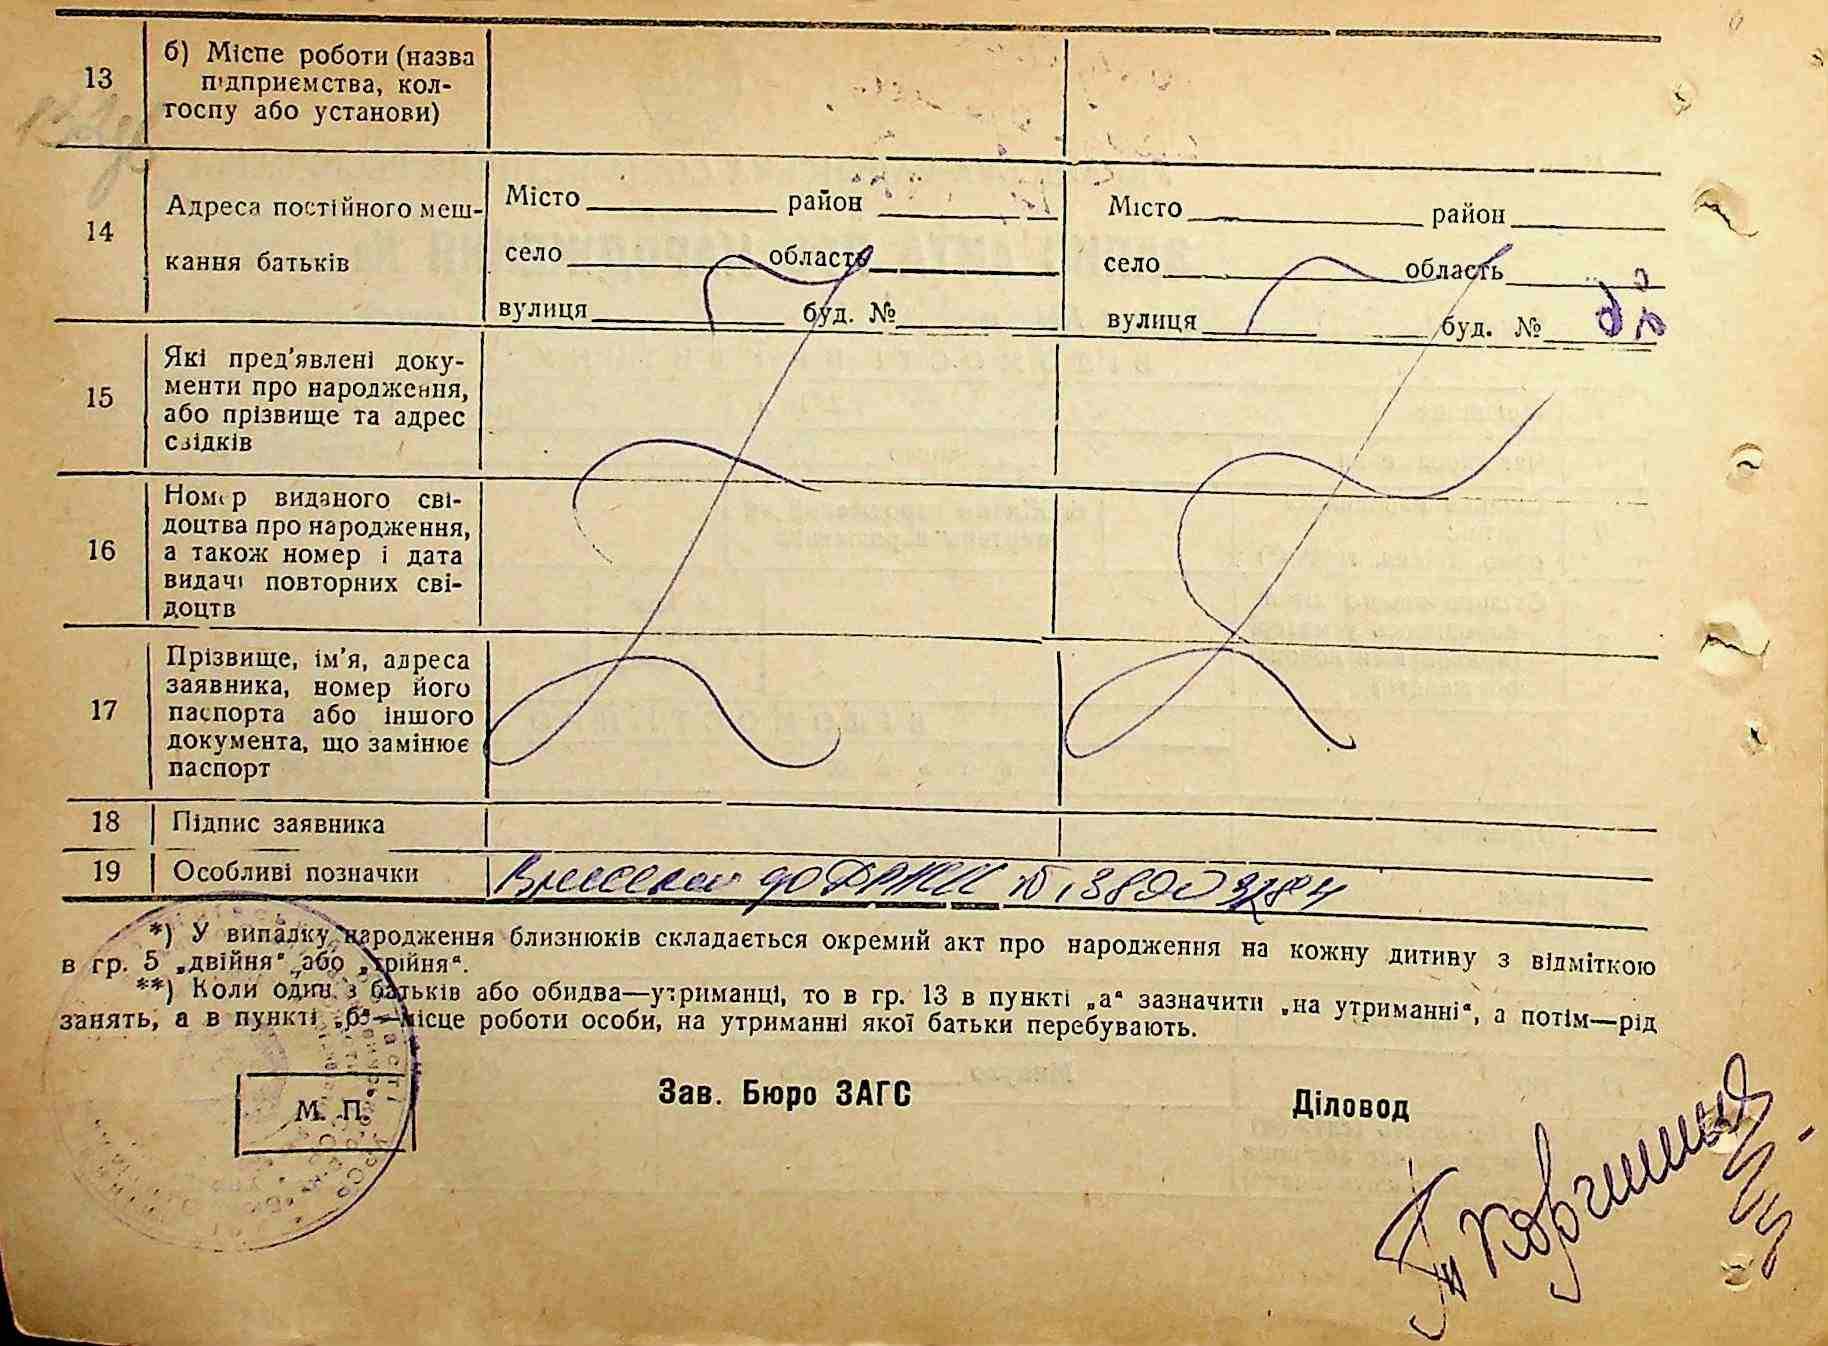 13
б) Місце роботи (назва
підприємства, кол-
госпу або установи)
14
Адреса постійного меш-
кання батьків
Місто район
село область
вулиця буд. №
Місто район
село область
вулиця буд. №
15
Які пред'явлені доку-
менти про народження,
або прізвище та адрес
свідків
16
Номер виданого сві-
доцтва про народження,
а також номер і дата
видачі повторних сві-
доцтв
17
Прізвище, ім'я, адреса
заявника, номер його
паспорта або іншого
документа, що замінює
паспорт
18
Підпис заявника
19
Особливі позначки
до
*) У випадку народження близнюків складається окремий акт про народження на кожну дитину з відміткою
в гр. 5 „двійня“ або „трійня“.
**) Коли один з батьків або обидва—утриманці, то в гр. 13 в пункті „а“ зазначити „на утриманні“, а потім—рід
занять, а в пункті „б“—місце роботи особи, на утриманні якої батьки перебувають.
М. П.
Зав. Бюро ЗАГС
Діловод